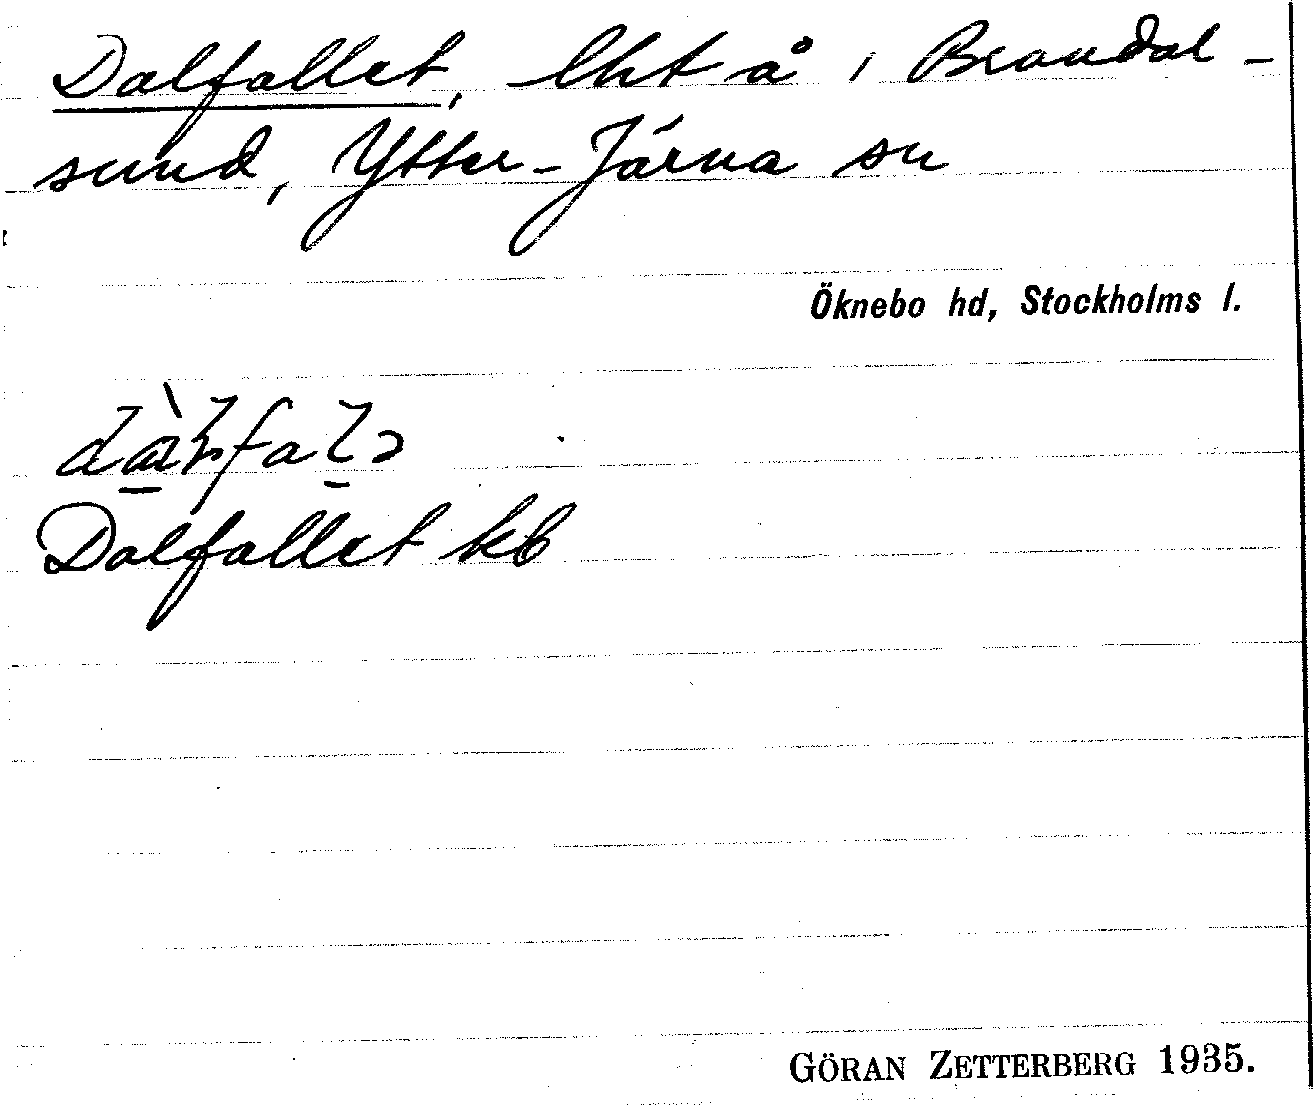 Dalfallet, lht å i Brandal-
sund, Ytter-Järna sn
Öknebo hd, Stockholms l.
Dalfallet kb
GÖRAN ZETTERBERG 1935.